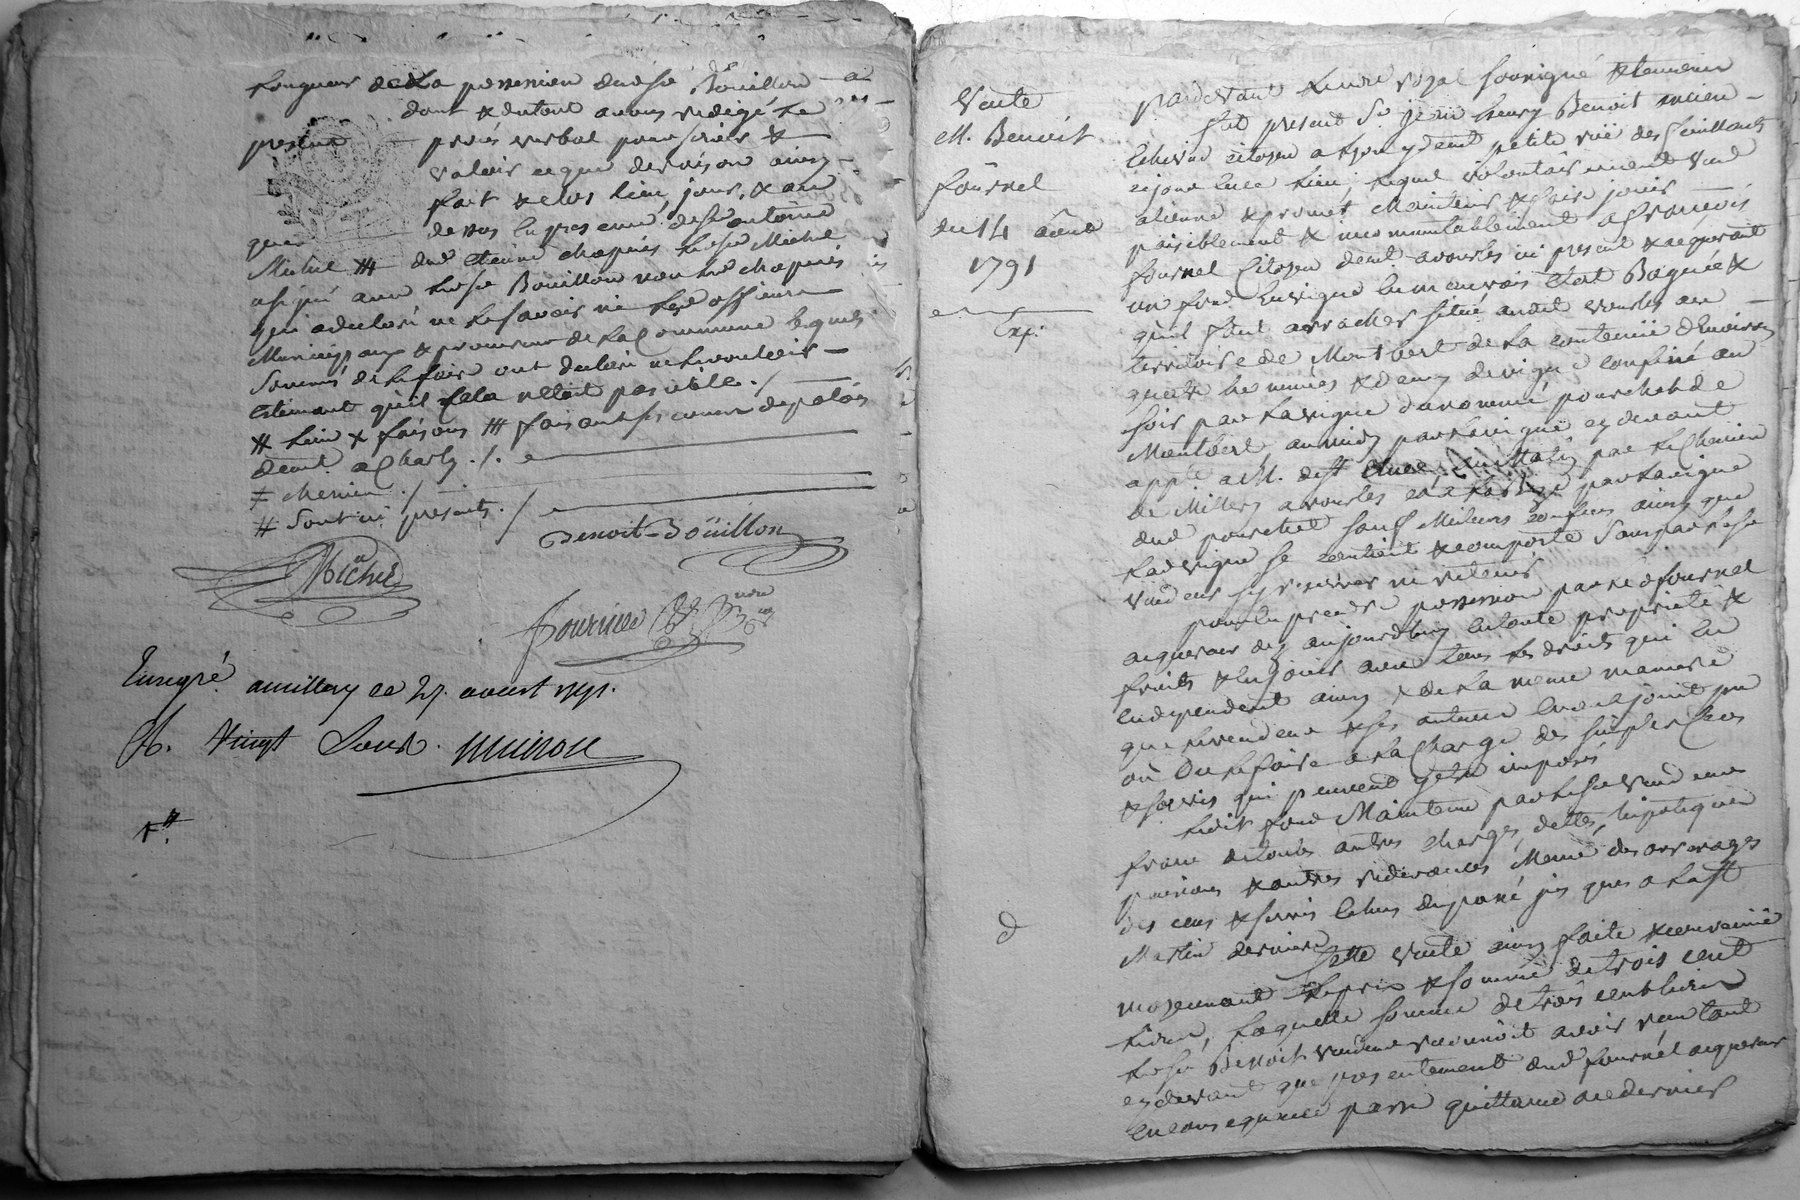 longueur de la possession dudse Bouillon
dont & dutout avons redigé le
present procès verbal pour servir &
valoir ce que de raison ainsy
fait & clos lieu, jour, & an
que devos en presence de sr antoine
Michel ##
and Etienne chapuis
Michel
Bouillon non led chapuis
qui a declaré ne le savoir ni les officiers
Municipaux & procureur de la Commune lesquels
Sommés de le faire ont declaré ne le vouloir
Estimant qu'il cela n'etoit pas utile ./.
# lieu & faisons ### faisant
demt. a Charly ./.
≠ chemin ./
# Sont ici presents ./
Benoit-Boüillon
Michel
fournier
Enregré. a millery ce 27. aoust 1791.
R. Vingt Sous.
Vente
M. Benoit
fournel
du 14 aôut
1791
Exp:
pardevant le nore royal soussigné & temoins
fut present Sr jean henry Benoit ancien
Echevin citoyen a lyon y demt petite ruë des feuillants
lequel volontairement vend
aliene & promet Maintenir & faire jouir
paisiblement & incommutablement a françois
fournel Citoyen demt a vourles ici present & acquerant
un fond en vigne en mauvais Etat Bagnée &
qu'il faut arracher situé audit vourles au
territoire de Montbert de la contenüe d'Environ
quatre hommées & demy de vigne confiné au
soir par la vigne du nommé pourchet de
Montbert, au midy par la vigne cy devant
appte a M. de st par le Chemin
de Millery a vourles par la vigne
dud pourchet sauf Meilleurs confins ainsy que
lad vigne se contient & comporte Sans par le sr
vendeur s'y reserver ni retenir
pour en prendre possession par led fournel
acquereur dez aujourdhuy en toute proprieté &
fruits & en jouir avec tous les droits qui en
dependent ainsy & de la meme maniere
que le vendeur & ses auteurs en ont joui pu
ou du le faire a la Charge des simples Cens
& servis qui peuvent y etre imposés
Ledit fond Maintenu par le sr vendeur
franc de toutes autres charges, dettes, hipoteques
pensions & autres redevances Meme des arrerages
des cens & servis Echus du passé jusques a la st
Martin derniere
Cette vente ainsy faite & convenuë
moyennant le prix & somme de trois cent
livres, laquelle somme de trois cent livres
le sr Benoit vendeur reconnoit avoir reçu tant
cy devant que presentement dud fournel acquereur
En consequence passe quittance a ce dernier